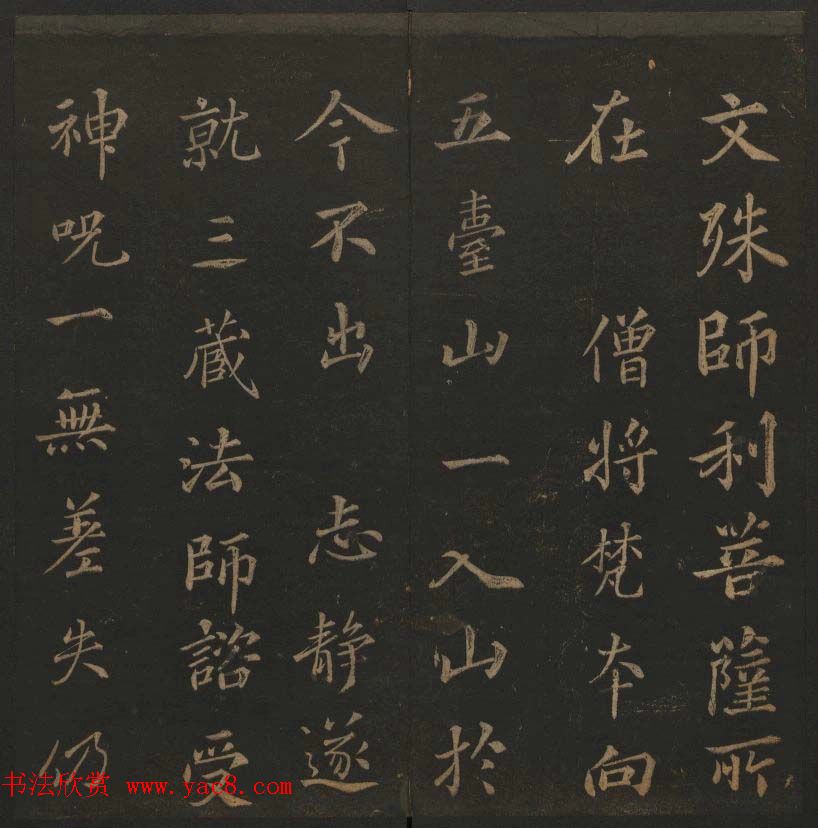 文殊師利菩薩所
在 僧將梵本向
五臺山一入山於
今不出 志静遂
就三蔵法師諮受
神呪一無差失仍
书法欣赏 www.yac8.com